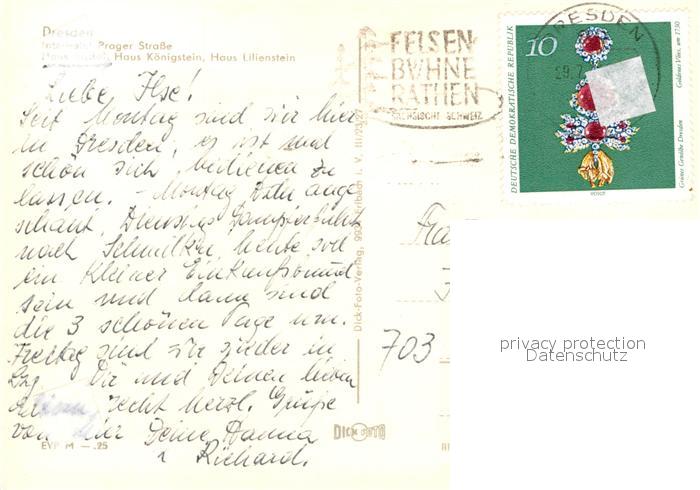 Dresden
Interhotel Prager Straße
Haus Bastei, Haus Königstein, Haus Lilienstein
Liebe Ilse!
Seit Montag sind wir hier
in Dresden, es ist mal
schön sich bedienen zu
lassen. - Montag Zoo ange
schaut, Dienstag Dampferfahrt
nach Schmilka, heute soll
ein kleiner Einkaufsbummel
sein und dann sind
die 3 schönen Tage um.
Freitag sind wir wieder in
Lzg. Dir und Deinen lieben
recht herzl. Grüße
von hier Deine Hanna
Richard.
EVP M —.25
Dick-Foto-Verlag, Erlbach i. V. III/23/27
DICK FOTO
FELSEN
BÜHNE
RATHEN
SÄCHSISCHE SCHWEIZ
DRESDEN
29.7
10
DEUTSCHE DEMOKRATISCHE REPUBLIK
Goldenes Vlies, um 1730
Grünes Gewölbe Dresden
Fra
703
privacy protection
Datenschutz